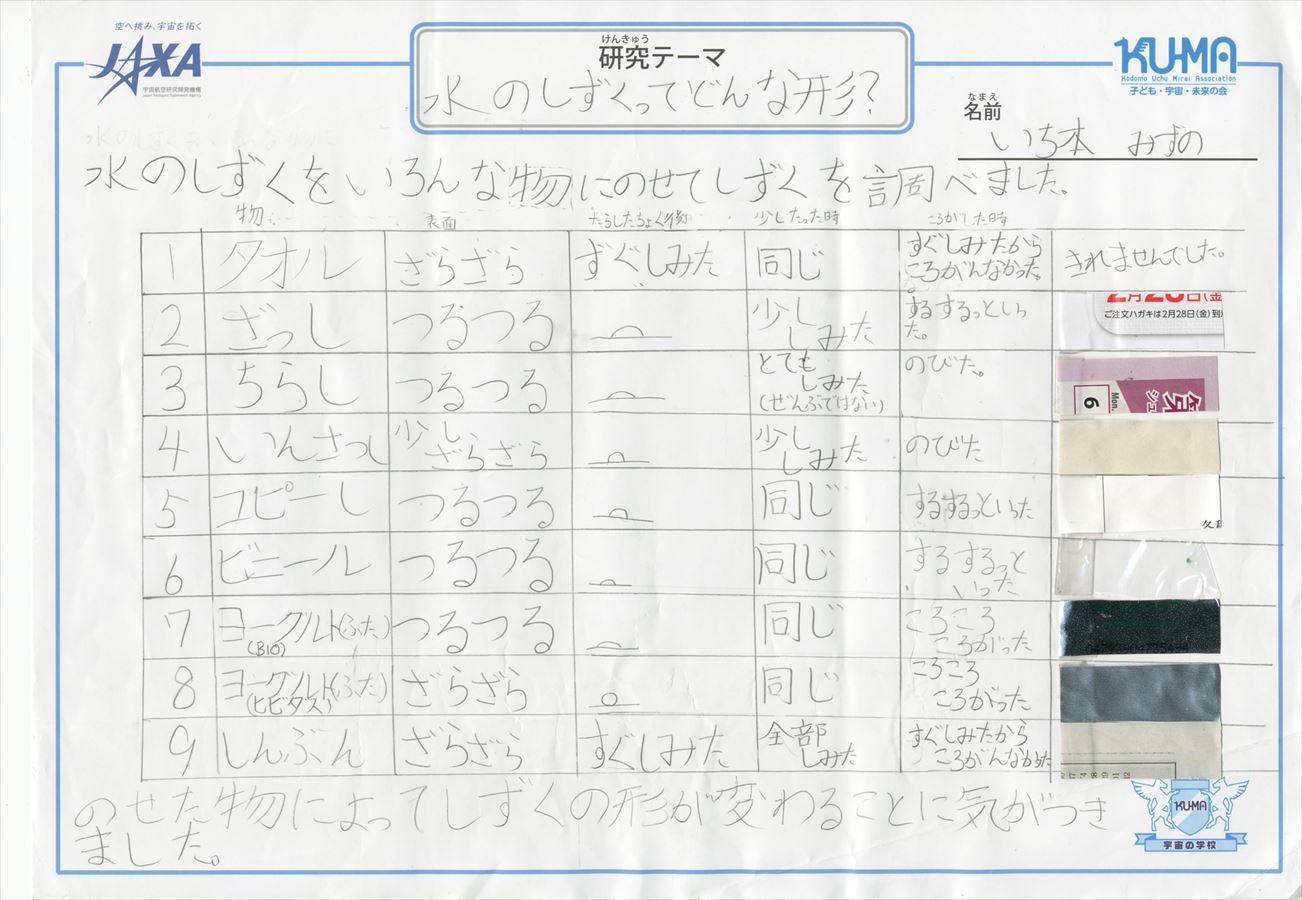 空へ挑み、宇宙を拓く
JAXA
宇宙航空研究開発機構
Japan Aerospace Exploration Agency
けんきゅう
研究テーマ
水のしずくってどんな形?
KU-MA
Kodomo Uchu Mirai Association
子ども・宇宙・未来の会
なまえ
名前
いち本 みずの
水のしずくをいろんな物にのせてしずくを調べました。
物 表面 たらしたちょく後 少したった時 ころがした時
1 タオル ざらざら すぐしみた 同じ すぐしみたからころがんなかった。 きれませんでした。
2 ざっし つるつる 少ししみた するするっといった。
2月28日(金
ご注文ハガキは2月28日(金)到
3 ちらし つるつる とてもしみた(ぜんぶではない) のびた。
6 Mon.
4 いんさつし 少しざらざら 少ししみた のびた
5 コピーし つるつる 同じ するするっといった
6 ビニール つるつる 同じ するするっといった
7 ヨーグルト(ふた)(BIO) つるつる 同じ ころころころがった
8 ヨーグルト(ふた)(ヒビダス) ざらざら 同じ ころころころがった
9 しんぶん ざらざら すぐしみた 全部しみた すぐしみたからころがんなかった
のせた物によってしずくの形が変わることに気がつき
ました。
KU-MA
宇宙の学校